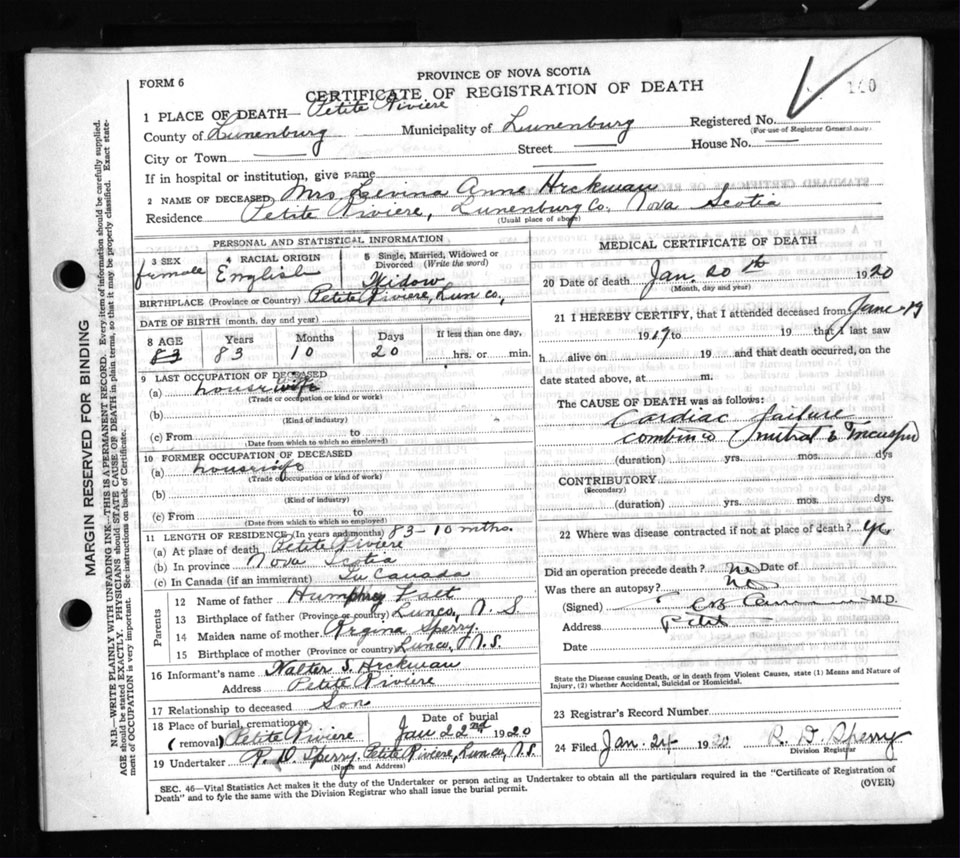 PROVINCE OF NOVA SCOTIA
FORM 6
CERTIFICATE OF REGISTRATION OF DEATH
140
1 PLACE OF DEATH— Petite Riviere
County of Lunenburg Municipality of Lunenburg Registered No.
(For use of Registrar General only)
City or Town Street House No.
If in hospital or institution, give name
2 NAME OF DECEASED Mrs Levina Anne Hirkman
Residence Petite Riviere, Lunenburg Co, Nova Scotia
(Usual place of abode)
PERSONAL AND STATISTICAL INFORMATION
3 SEX female
4 RACIAL ORIGIN English
5 Single, Married, Widowed or Divorced (Write the word) Widow
BIRTHPLACE (Province or Country) Petite Riviere, Lun co,
DATE OF BIRTH (month, day and year)
8 AGE Years Months Days If less than one day,
83 83 10 20 hrs. or min.
9 LAST OCCUPATION OF DECEASED
(a) housewife
(Trade or occupation or kind of work)
(b)
(Kind of industry)
(c) From to
(Date from which to which so employed)
10 FORMER OCCUPATION OF DECEASED
(a) housewife
(Trade or occupation or kind of work)
(b)
(Kind of industry)
(c) From to
(Date from which to which so employed)
11 LENGTH OF RESIDENCE (In years and months) 83–10 mths.
(a) At place of death Petite Riviere
(b) In province Nova Scotia
(c) In Canada (if an immigrant) In Canada
Parents
12 Name of father Humphrey
13 Birthplace of father (Province or country) Lun co, N. S
14 Maiden name of mother Sperry.
15 Birthplace of mother (Province or country) Lun co, N. S.
16 Informant's name Walter S. Hirkman
Address Petite Riviere
17 Relationship to deceased Son
18 Place of burial, cremation or (removal) Petite Riviere Date of burial Jan 22nd 1920
19 Undertaker R. D. Sperry. Petite Riviere, Lun co, N. S.
(Name and Address)
MEDICAL CERTIFICATE OF DEATH
20 Date of death Jan. 20th 1920
(Month, day and year)
21 I HEREBY CERTIFY, that I attended deceased from June 19
1919 to 19 that I last saw
h alive on 19 and that death occurred, on the
date stated above, at m.
The CAUSE OF DEATH was as follows:
Cardiac failure
combined mitral &
(duration) yrs. mos. dys
CONTRIBUTORY
(Secondary)
(duration) yrs. mos. dys.
22 Where was disease contracted if not at place of death?
Did an operation precede death? no Date of
Was there an autopsy? no
(Signed) M.D.
Address Petite
Date
State the Disease causing Death, or in death from Violent Causes, state (1) Means and Nature of
Injury, (2) whether Accidental, Suicidal or Homicidal.
23 Registrar's Record Number
24 Filed Jan. 24 1920 R. D. Sperry
Division Registrar
SEC. 46—Vital Statistics Act makes it the duty of the Undertaker or person acting as Undertaker to obtain all the particulars required in the "Certificate of Registration of
Death" and to fyle the same with the Division Registrar who shall issue the burial permit.
(OVER)
MARGIN RESERVED FOR BINDING
N.B.—WRITE PLAINLY WITH UNFADING INK—THIS IS A PERMANENT RECORD. Every item of information should be carefully supplied.
AGE should be stated EXACTLY. PHYSICIANS should STATE CAUSE OF DEATH in plain terms, so that it may be properly classified. Exact state-
ment of OCCUPATION is very important. See instructions on back of Certificate.